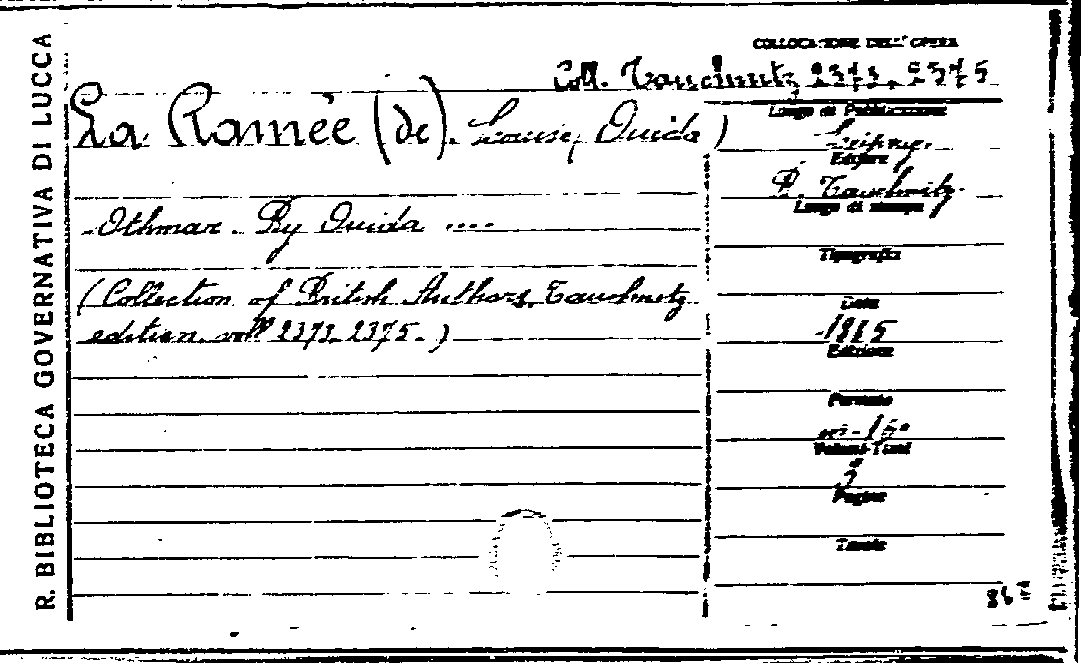 R. BIBLIOTECA GOVERNATIVA DI LUCCA
COLLOCAZIONE DELL'OPERA
Coll. Tauchnitz 2373-2375
La Ramée (de). Louise, Ouida)
Luogo di Pubblicazione
Leipzig.
Editore
B. Tauchnitz.
Luogo di stampa
Othmar. By Ouida ....
Tipografia
(Collection of British Authors, Tauchnitz
edition. voll 2373-2375.)
Data
1885
Edizione
Formato
in-16°
Volumi-Tomi
3
Pagine
Tavole